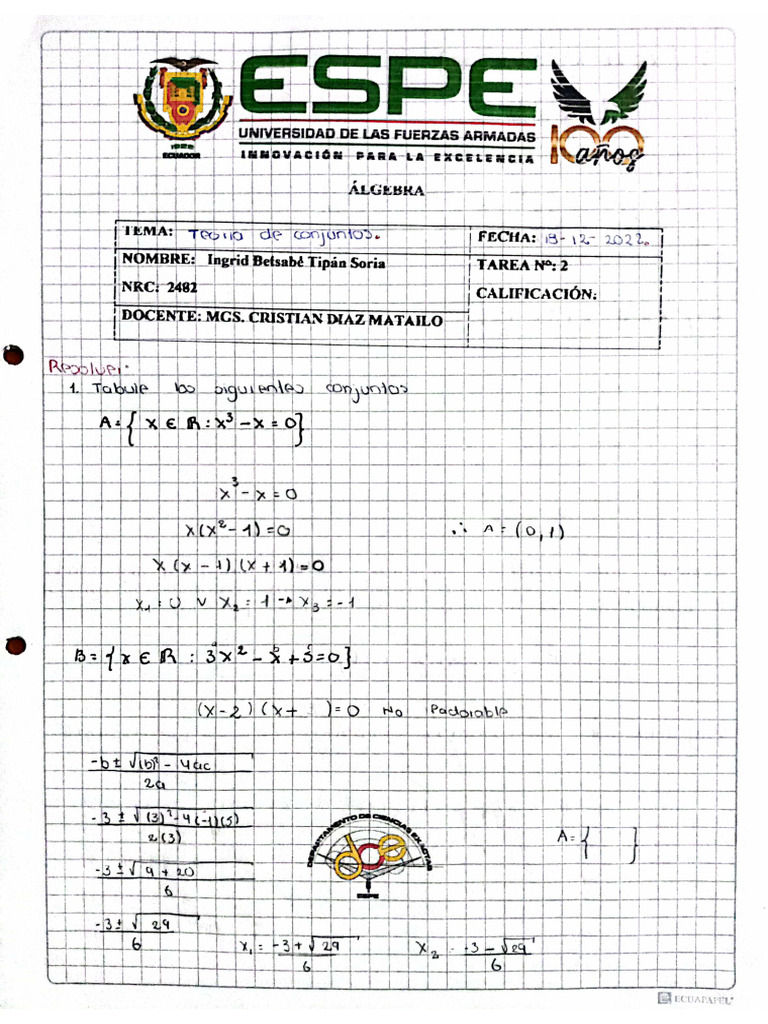 ESPE
UNIVERSIDAD DE LAS FUERZAS ARMADAS
INNOVACIÓN PARA LA EXCELENCIA
1922
ECUADOR
100 años
ÁLGEBRA
TEMA: Teoria de conjuntos.
FECHA: 19-12-2022.
NOMBRE: Ingrid Betsabé Tipán Soria
TAREA Nº: 2
NRC: 2482
CALIFICACIÓN:
DOCENTE: MGS. CRISTIAN DIAZ MATAILO
Resolver:
1. Tabule los siguientes conjuntos
A = { x ∈ R : x³ - x = 0}
x³ - x = 0
x(x² - 1) = 0
∴ A = (0, 1)
x (x - 1) (x + 1) = 0
x₁ = 0 ∨ x₂ = 1 → x₃ = -1
B = { x ∈ R : 3x² - x + 5 = 0}
(x - 2) (x + ) = 0 No
-b ± √(b)² - 4ac
2a
-3 ± √(3)² - 4(-1)(5)
2(3)
A = { }
-3 ± √9 + 20
6
-3 ± √29
6
x₁ = -3 + √29
6
x₂ = -3 - √29
6
DEPARTAMENTO DE CIENCIAS EXACTAS
dce
ESPE
ECUAPAPEL